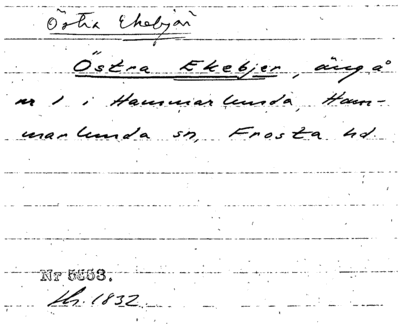 Östra Ekebjär
Östra Ekebjer, äng å
nr 1 i Hammarlunda, Ham-
marlunda sn, Frosta hd
Nr 5553.
1832.